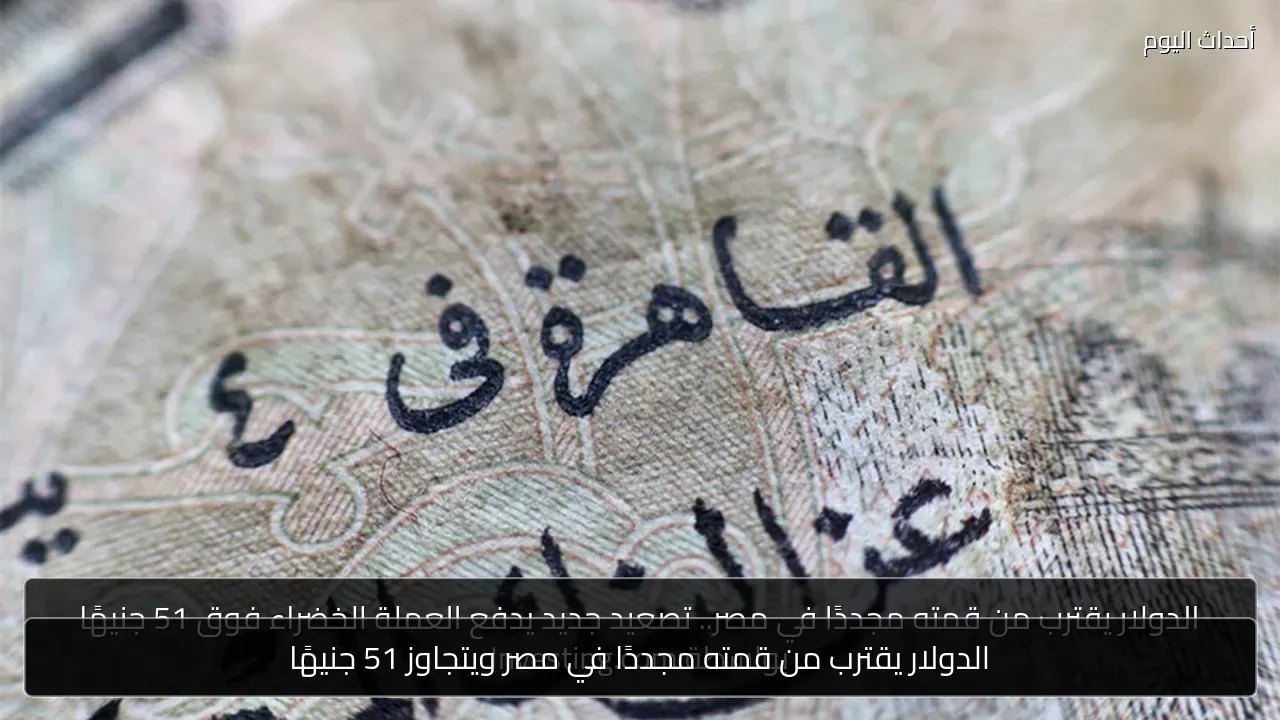 أحداث اليوم
القاهرة في ٤
الدولار يقترب من قمته مجددًا في مصر.. تصعيد جديد يدفع العملة الخضراء فوق 51 جنيهًا
الدولار يقترب من قمته مجددًا في مصر ويتجاوز 51 جنيهًا